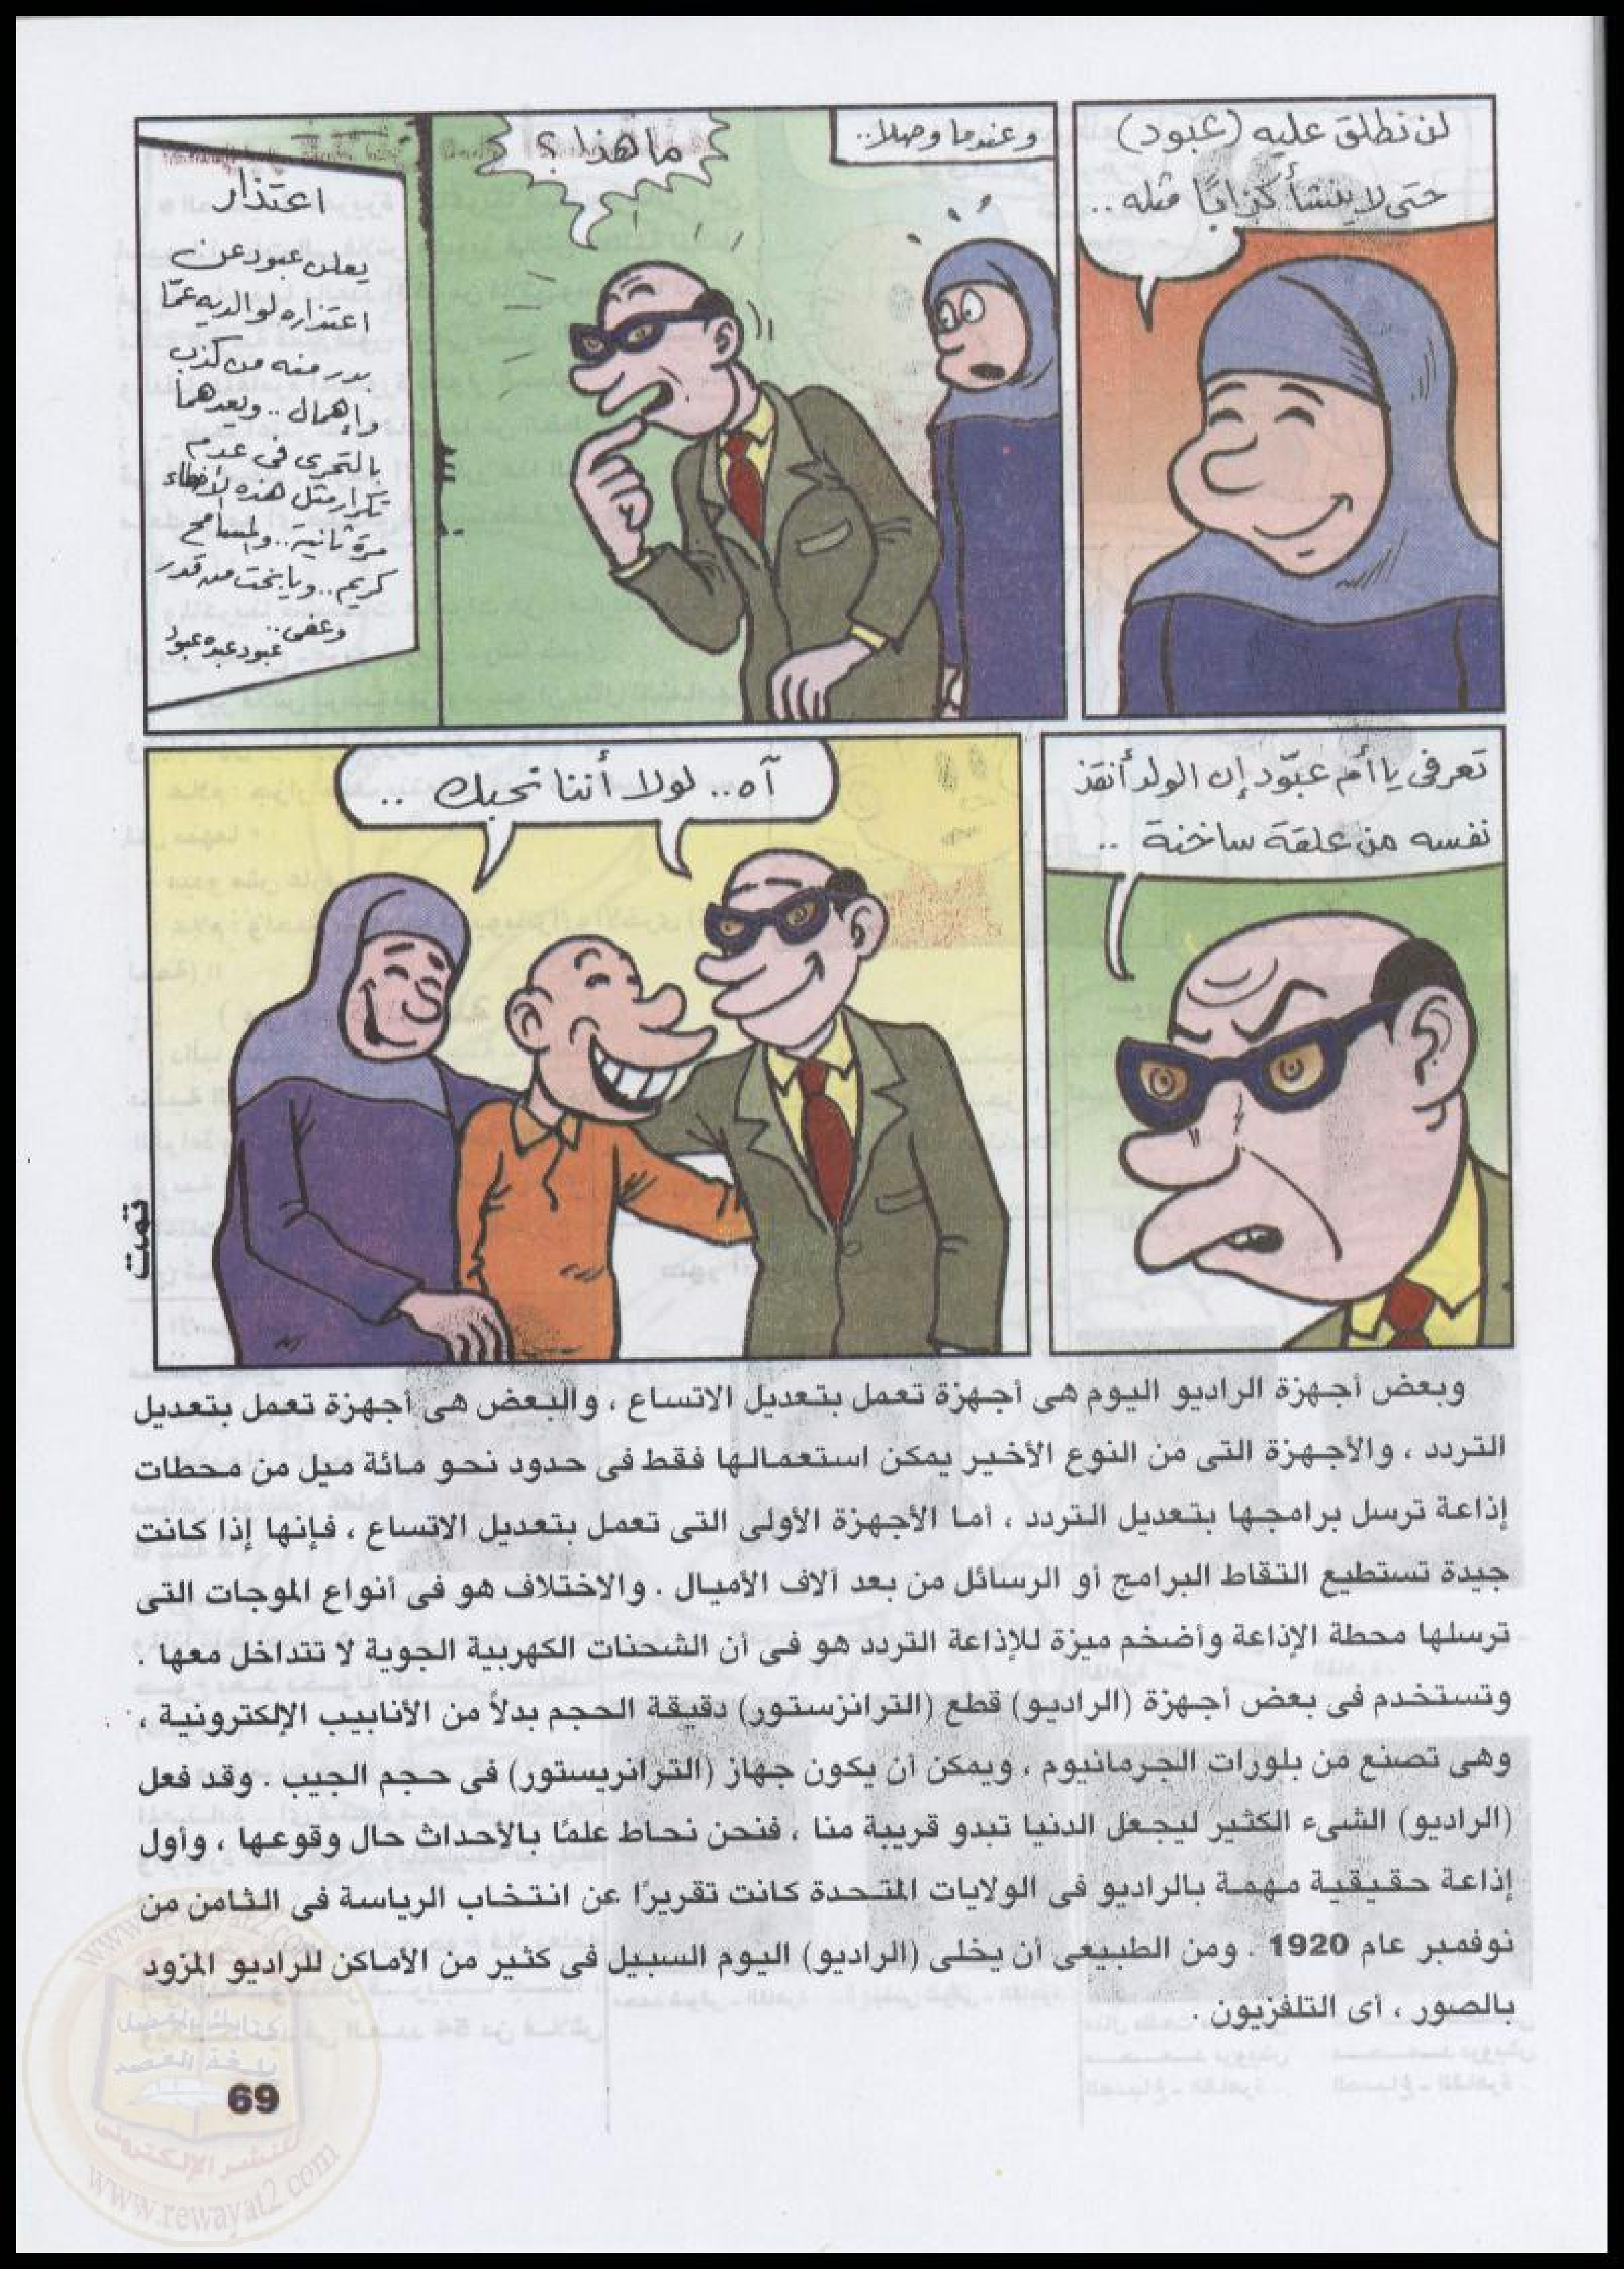 لن نطلق عليه (عبود)
حتى لا ينشأ كذابًا مثله ..
وعندما وصلا..
ما هذا ؟
اعتذار
يعلن عبود عن
اعتذاره لوالديه عمّا
بدر منه من كذب
وإهمال .. ويعدهما
بالتحرى فى عدم
تكرار مثل هذه الأخطاء
مرة ثانية .. والمسامح
كريم .. ويا بخت من قدر
وعفى ..
عبود عبده عبود
تعرفى يا أم عبّود إن الولد أنقذ
نفسه من علقة ساخنة ..
آه .. لولا أننا نحبك ..
تمت
وبعض أجهزة الراديو اليوم هى أجهزة تعمل بتعديل الاتساع ، والبعض هى أجهزة تعمل بتعديل
التردد ، والأجهزة التى من النوع الأخير يمكن استعمالها فقط فى حدود نحو مائة ميل من محطات
إذاعة ترسل برامجها بتعديل التردد ، أما الأجهزة الأولى التى تعمل بتعديل الاتساع ، فإنها إذا كانت
جيدة تستطيع التقاط البرامج أو الرسائل من بعد آلاف الأميال . والاختلاف هو فى أنواع الموجات التى
ترسلها محطة الإذاعة وأضخم ميزة للإذاعة التردد هو فى أن الشحنات الكهربية الجوية لا تتداخل معها .
وتستخدم فى بعض أجهزة (الراديو) قطع (الترانزستور) دقيقة الحجم بدلاً من الأنابيب الإلكترونية ،
وهى تصنع من بلورات الجرمانيوم ، ويمكن أن يكون جهاز (الترانريستور) فى حجم الجيب . وقد فعل
(الراديو) الشىء الكثير ليجعل الدنيا تبدو قريبة منا ، فنحن نحاط علمًا بالأحداث حال وقوعها ، وأول
إذاعة حقيقية مهمة بالراديو فى الولايات المتحدة كانت تقريرًا عن انتخاب الرياسة فى الثامن من
نوفمبر عام 1920 . ومن الطبيعى أن يخلى (الراديو) اليوم السبيل فى كثير من الأماكن للراديو المزود
بالصور ، أى التلفزيون .
69
www.rewayat2.com